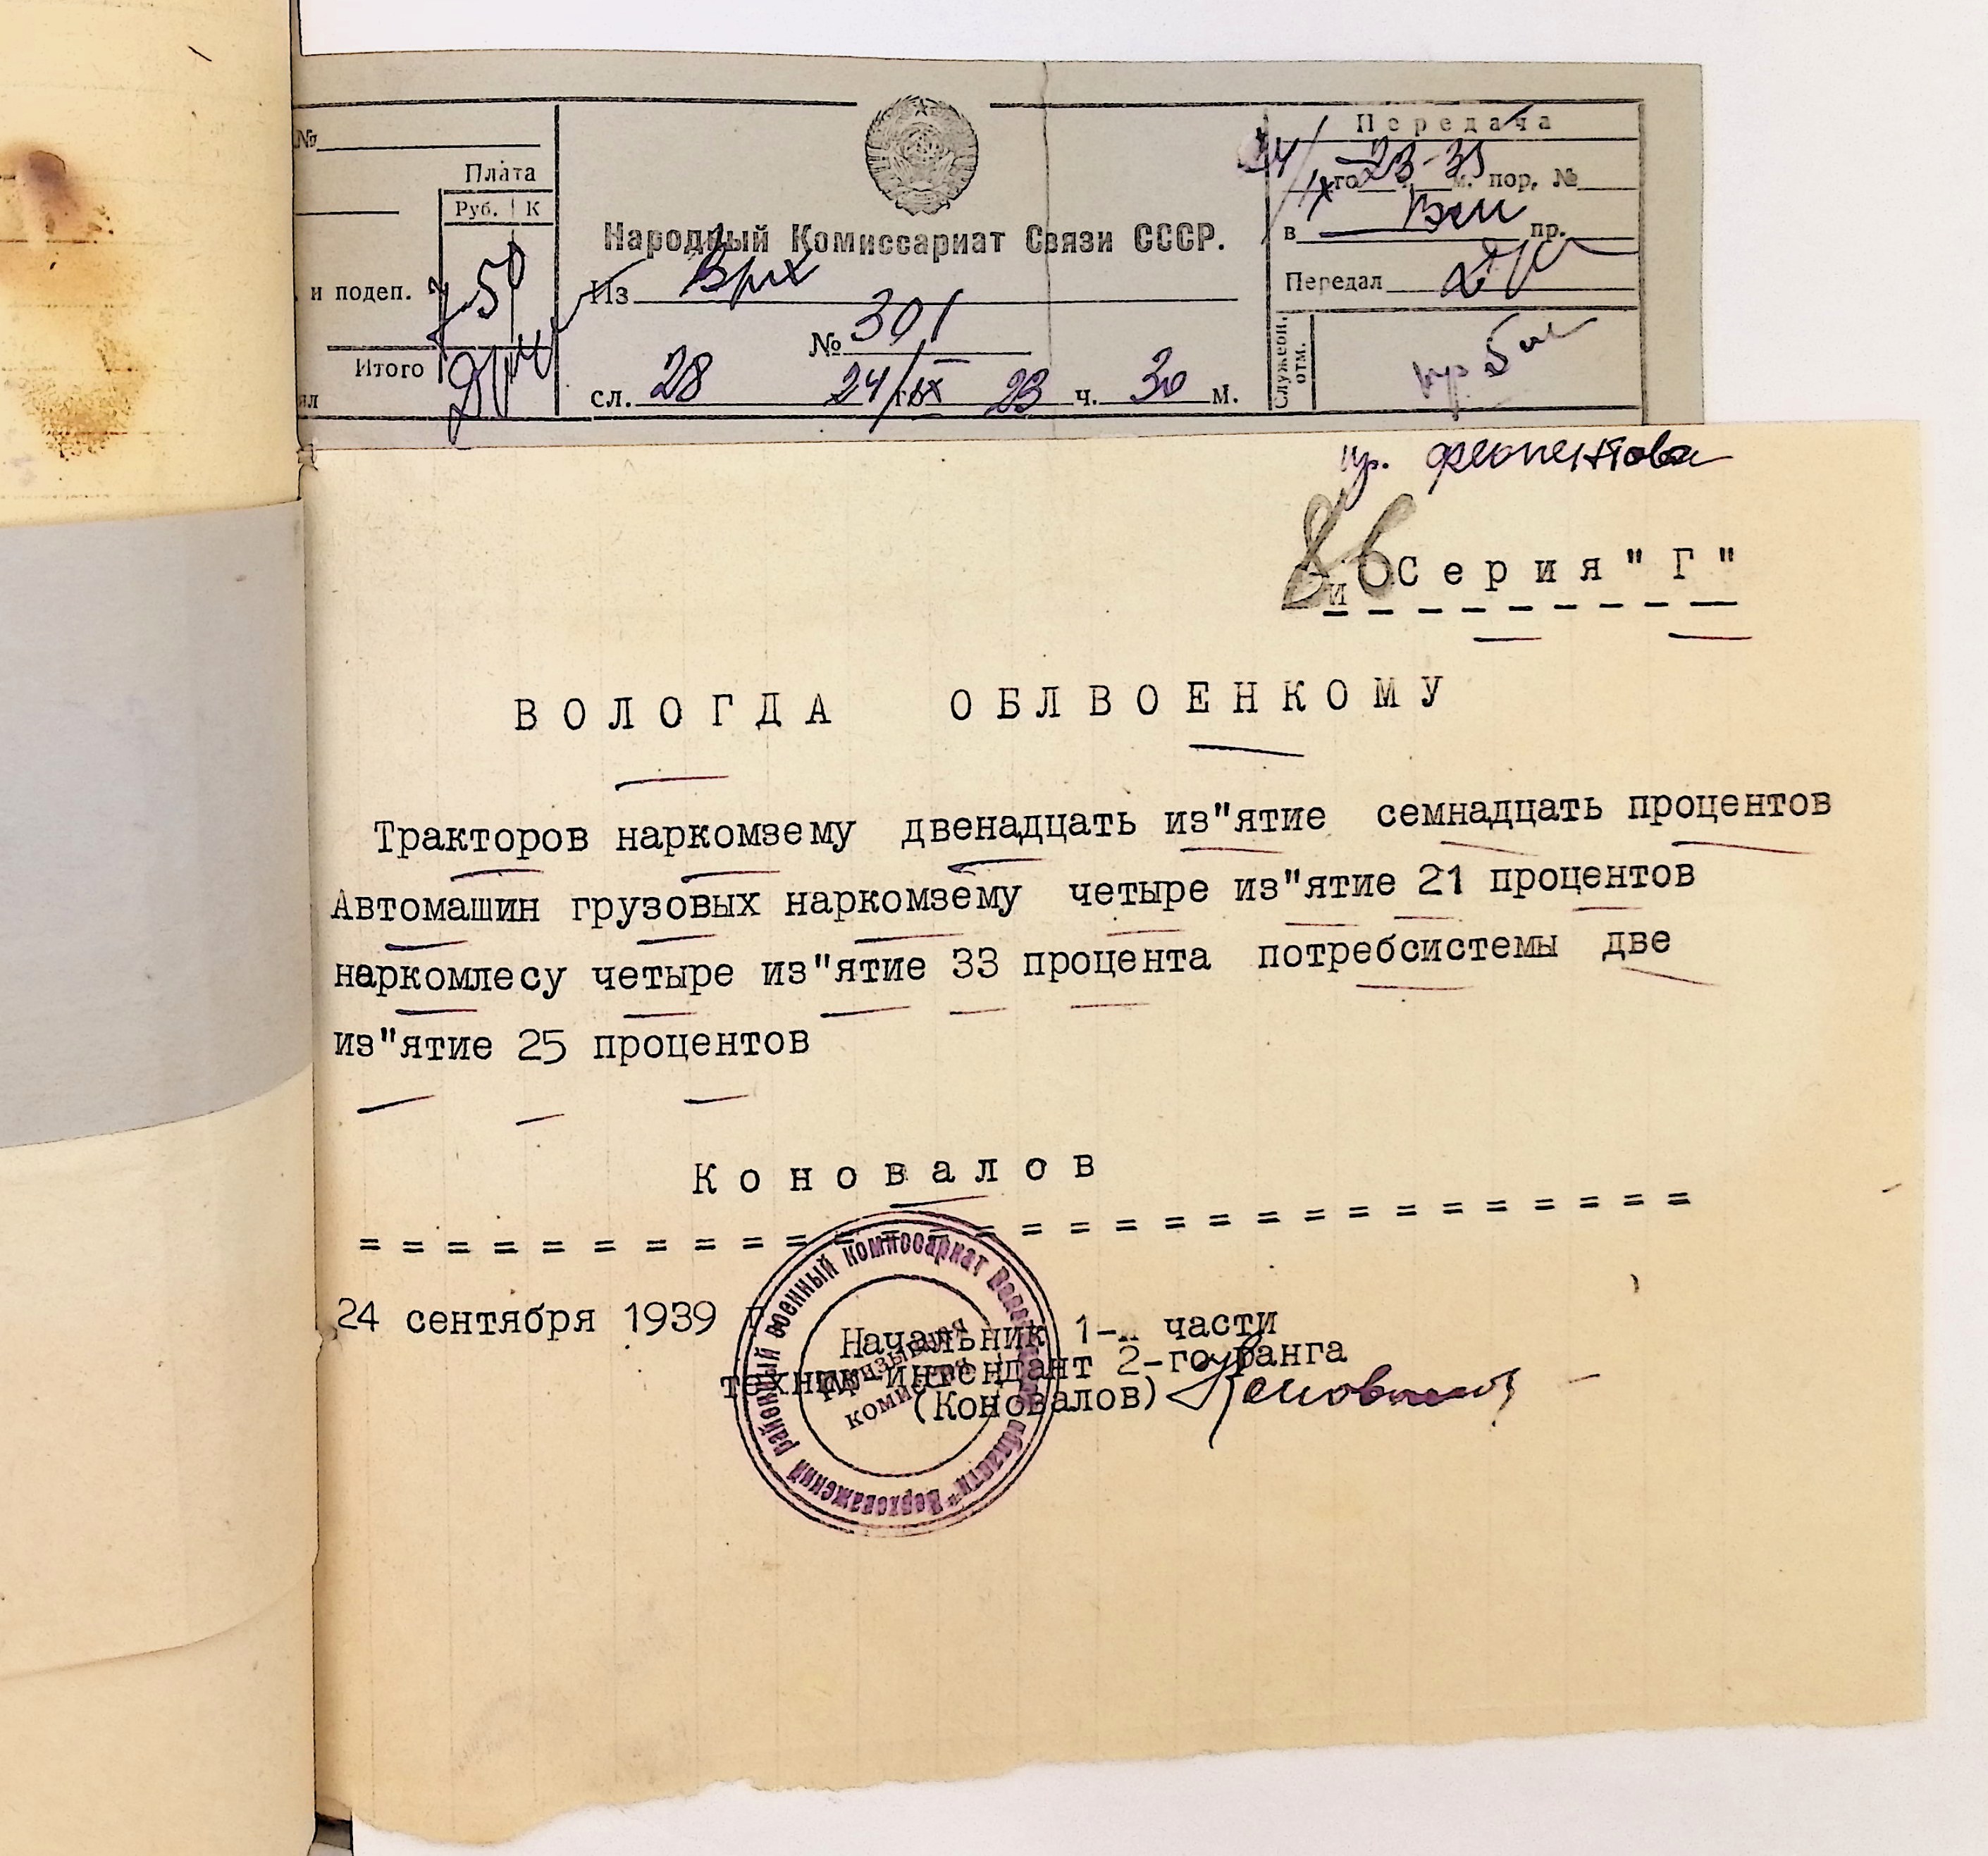 №
Плата
Руб. К
и подеп.
50
Итого
Народный Комиссариат Связи СССР.
Из Врх
№ 301
сл. 28 24/IX 23 ч. 30 м.
Передача
24/IX го 23-35 м. пор. №
в пр.
Передал
Служебн. отм.
86
Серия "Г"
ВОЛОГДА ОБЛВОЕНКОМУ
Тракторов наркомзему двенадцать из"ятие семнадцать процентов
Автомашин грузовых наркомзему четыре из"ятие 21 процентов
наркомлесу четыре из"ятие 33 процента потребсистемы две
из"ятие 25 процентов
Коновалов
= = = = = = = = = = = = = = = = = = = = = = = = = = = =
24 сентября 1939 г
Начальник 1-й части
техник-интендант 2-го ранга
(Коновалов) Коновалов
районный военный комиссариат
области Верховажский
Призывная
комиссия